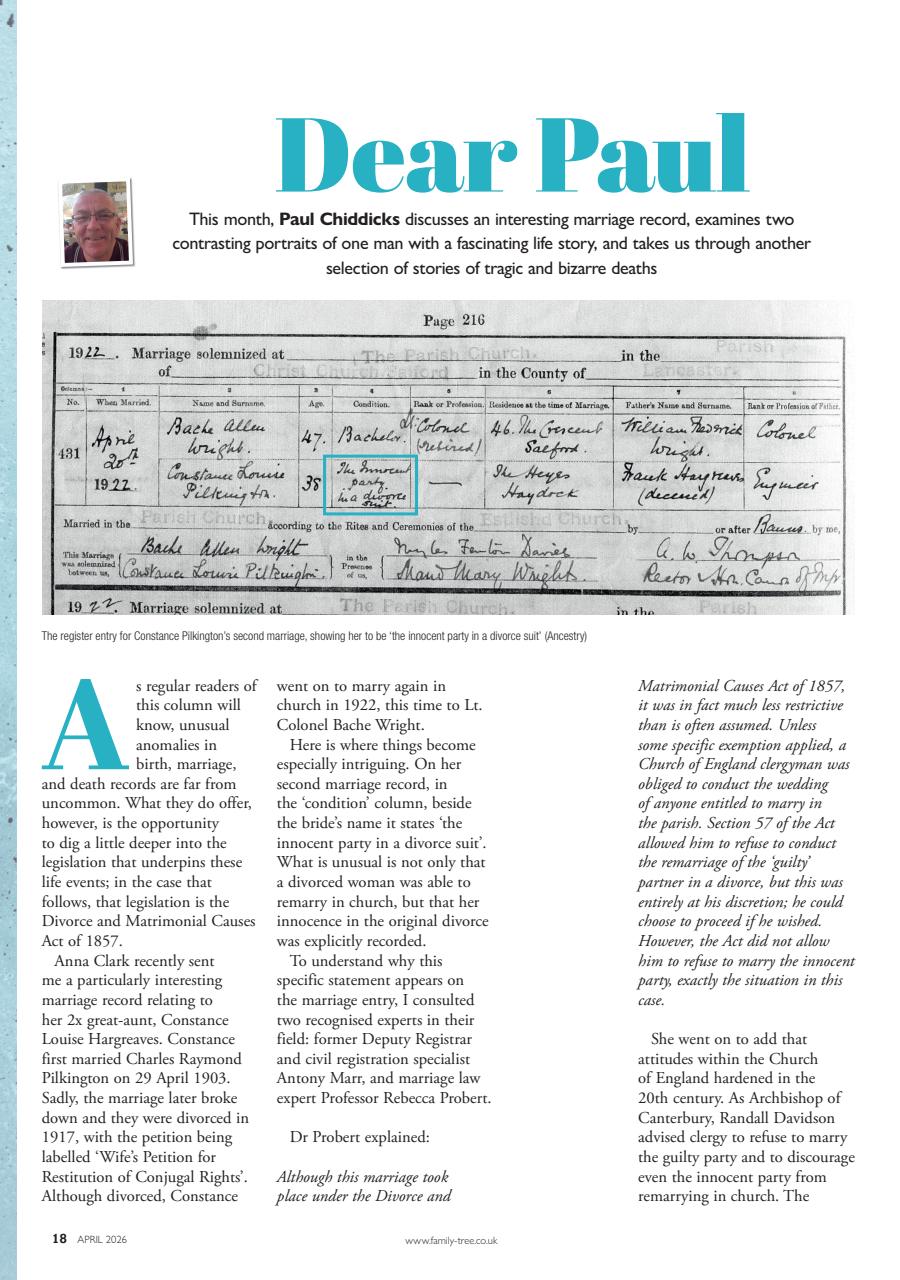 Dear Paul
This month, Paul Chiddicks discusses an interesting marriage record, examines two
contrasting portraits of one man with a fascinating life story, and takes us through another
selection of stories of tragic and bizarre deaths
Page 216
1922. Marriage solemnized at The Parish Church. in the Parish
of Christ Church Salford in the County of Lancaster.
Columns:— 1 2 3 4 5 6 7 8
No. When Married. Name and Surname. Age. Condition. Rank or Profession. Residence at the time of Marriage. Father's Name and Surname. Rank or Profession of Father.
431
April
20th
1922.
Bache Allen
Wright.
47.
Bachelor.
Lt. Colonel
(retired)
46. The Crescent
Salford.
William Frederick
Wright.
Colonel
Constance Louise
Pilkington.
38
The Innocent
party
in a divorce
suit.
The Heyes
Haydock
Frank Hargreaves
(deceased)
Engineer
Married in the Parish Church according to the Rites and Ceremonies of the Establishd Church. by or after Banns. by me,
This Marriage
was solemnized
between us,
Bache Allen Wright
Constance Louise Pilkington.
in the
Presence
of us,
Fenton Davies
Maud Mary Wright.
A. W. Thompson
Rector & Hon. Canon of
1922. Marriage solemnized at The Parish Church. in the Parish
The register entry for Constance Pilkington's second marriage, showing her to be 'the innocent party in a divorce suit' (Ancestry)
As regular readers of
this column will
know, unusual
anomalies in
birth, marriage,
and death records are far from
uncommon. What they do offer,
however, is the opportunity
to dig a little deeper into the
legislation that underpins these
life events; in the case that
follows, that legislation is the
Divorce and Matrimonial Causes
Act of 1857.
Anna Clark recently sent
me a particularly interesting
marriage record relating to
her 2x great-aunt, Constance
Louise Hargreaves. Constance
first married Charles Raymond
Pilkington on 29 April 1903.
Sadly, the marriage later broke
down and they were divorced in
1917, with the petition being
labelled 'Wife's Petition for
Restitution of Conjugal Rights'.
Although divorced, Constance
went on to marry again in
church in 1922, this time to Lt.
Colonel Bache Wright.
Here is where things become
especially intriguing. On her
second marriage record, in
the 'condition' column, beside
the bride's name it states 'the
innocent party in a divorce suit'.
What is unusual is not only that
a divorced woman was able to
remarry in church, but that her
innocence in the original divorce
was explicitly recorded.
To understand why this
specific statement appears on
the marriage entry, I consulted
two recognised experts in their
field: former Deputy Registrar
and civil registration specialist
Antony Marr, and marriage law
expert Professor Rebecca Probert.
Dr Probert explained:
Although this marriage took
place under the Divorce and
Matrimonial Causes Act of 1857,
it was in fact much less restrictive
than is often assumed. Unless
some specific exemption applied, a
Church of England clergyman was
obliged to conduct the wedding
of anyone entitled to marry in
the parish. Section 57 of the Act
allowed him to refuse to conduct
the remarriage of the 'guilty'
partner in a divorce, but this was
entirely at his discretion; he could
choose to proceed if he wished.
However, the Act did not allow
him to refuse to marry the innocent
party, exactly the situation in this
case.
She went on to add that
attitudes within the Church
of England hardened in the
20th century. As Archbishop of
Canterbury, Randall Davidson
advised clergy to refuse to marry
the guilty party and to discourage
even the innocent party from
remarrying in church. The
18 APRIL 2026
www.family-tree.co.uk